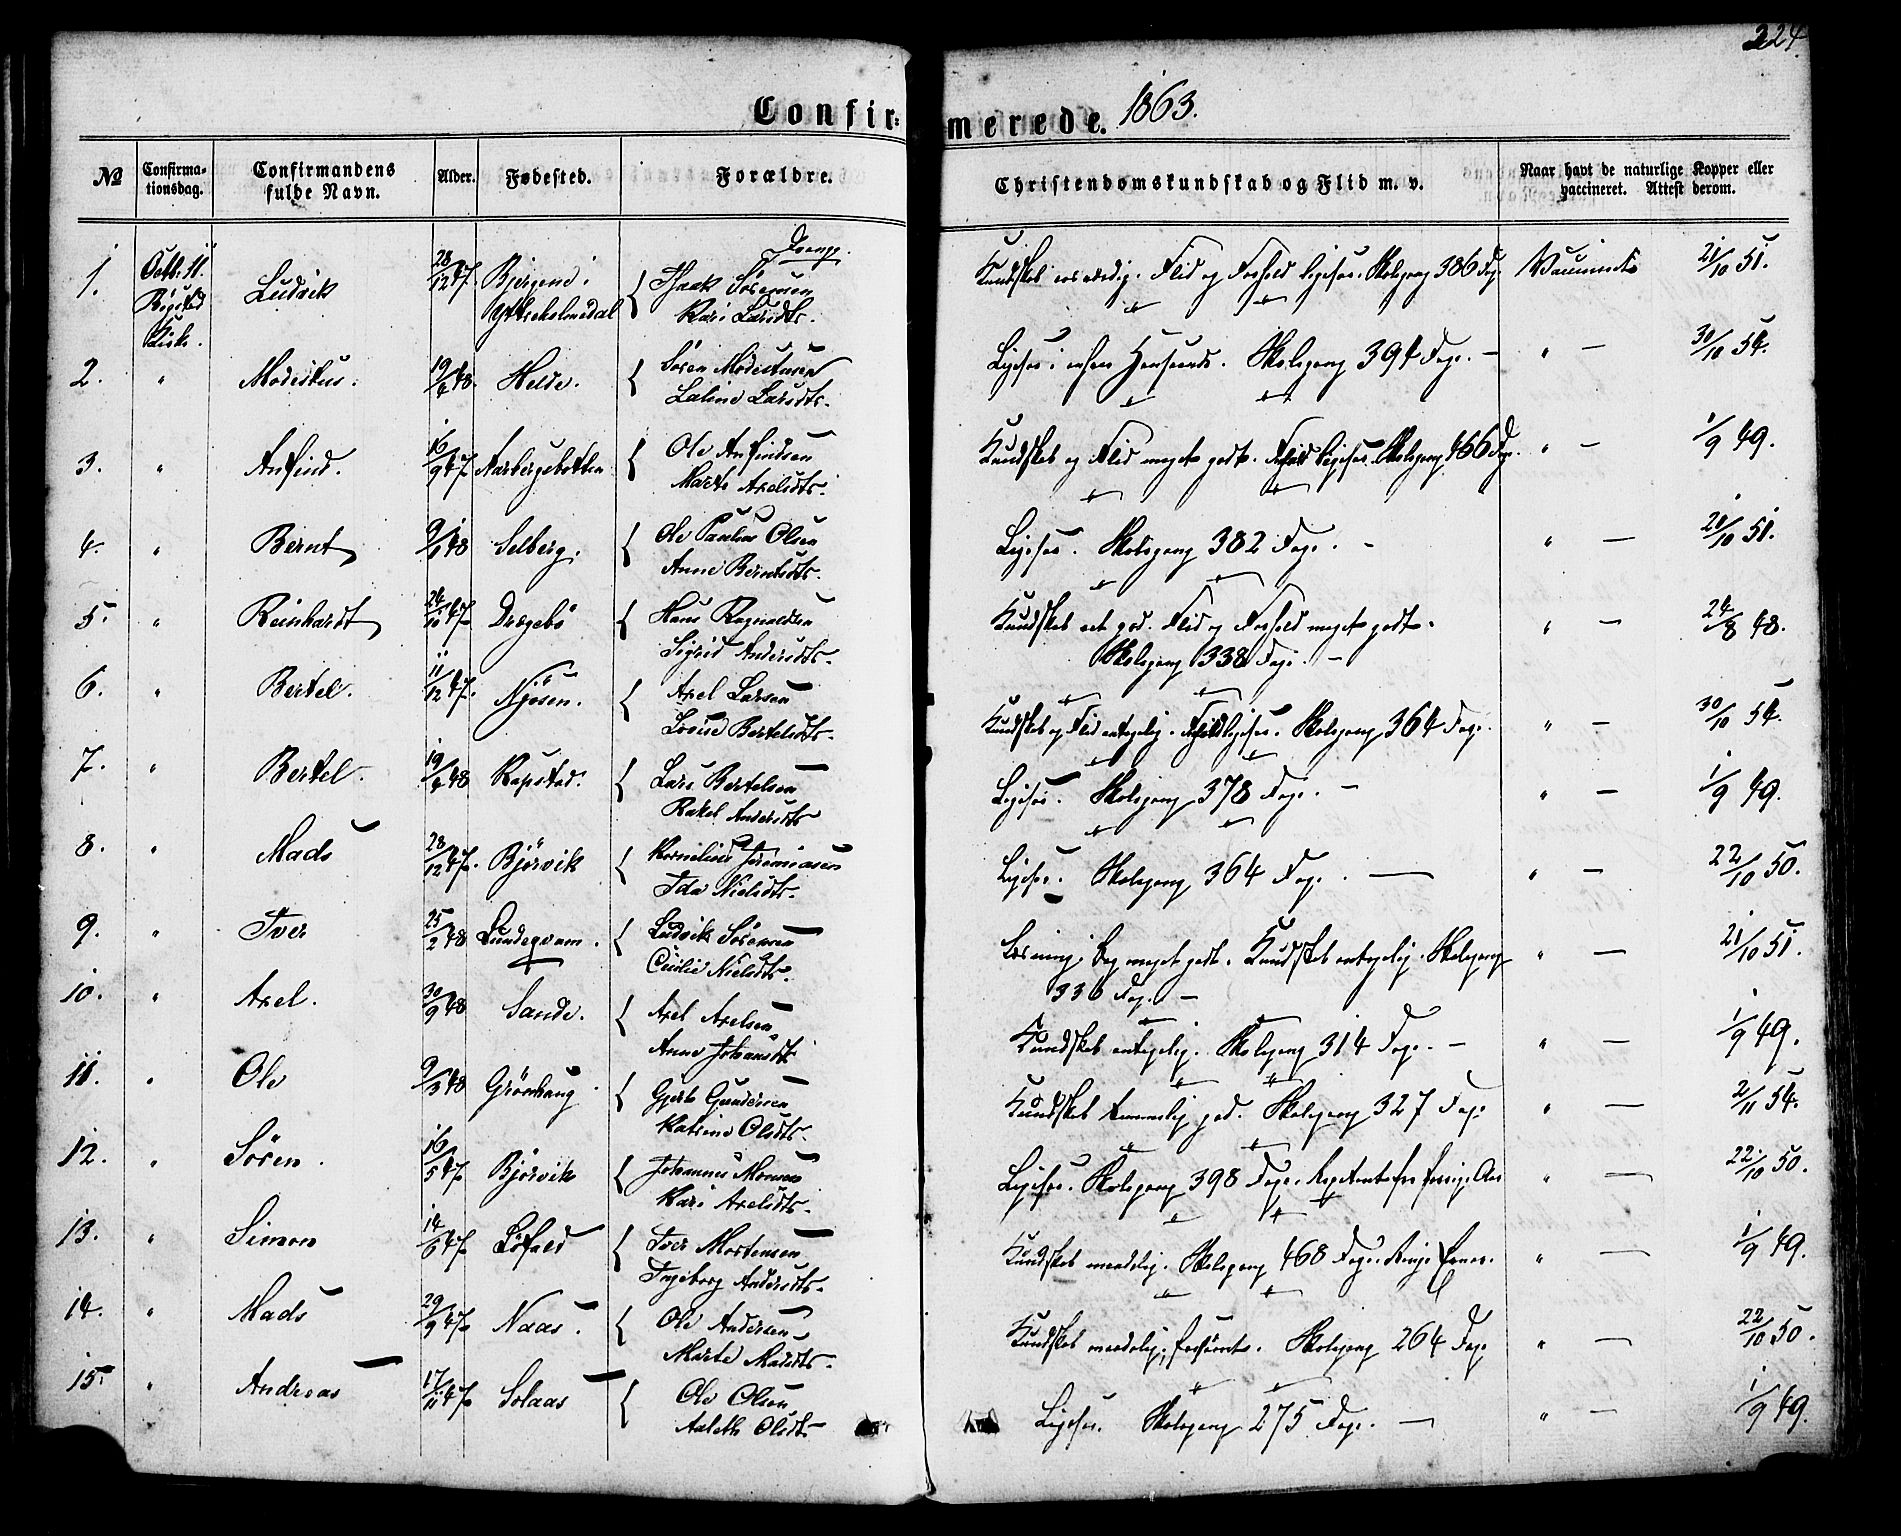 224.
Confirmerede. 1863.
№ Confirmationsdag. Confirmandens fulde Navn. Alder. Fødested. Forældre. Christendomskundskab og Flid m. v. Naar havt de naturlige Kopper eller vaccineret. Attest derom.
Drenge.
1. Octbr. 11. Ludvik 28/12 47. Isaak Sörensen Kundskab Flid og Forhold ligesaa. Skolegang 386 Dage 21/10 51.
Kirke. Ytreholmedal Kari Larsdtr.
2. " Modestus. 19/4 48. Helle. Sören Modestusen Ligesaa i enhver Henseende. Skolegang 394 Dage. — " — 30/10 54.
Larsdtr.
3. " Anfind. 16/9 47. Ole Anfindsen Kundskab og Flid meget godt. Forhold ligesaa. Skolegang 466 Dage. " — 1/9 49.
Marte Axelsdtr.
4. " Bernt 9/1 48 Selberg. Ole Paulus Olsen Ligesaa. Skolegang 382 Dage. — " — 21/10 51.
Anne Berntsdtr.
5. " Reinhardt 24/10 47. Dragebö Hans Ragnaldsen Kundskab ret god. Flid og Forhold meget godt. " — 24/8 48.
Sigrid Andersdtr. Skolegang 338 Dage. —
6. " Bertel. 11/12 47. Njösen. Axel Larsen Kundskab og Flid antagelig. Forhold ligesaa. Skolegang 364 Dage. " — 30/10 54.
Lovise Bertelsdtr.
7. " Bertel. 19/4 48 Rapstad. Lars Bertelsen Ligesaa. Skolegang 378 Dage. — " — 1/9 49.
Rakel Andersdtr
8. " Mads 28/12 47. Björvik Kornelius Jeremiasen Ligesaa. Skolegang 364 Dage. — " — 22/10 50.
Ida Nielsdtr.
9. " Iver 25/2 48 Lundeqvam. Ludvik Sörensen Læsning i Bog meget godt. Kundskab antagelig. Skolegang " — 21/10 51.
Cicilie Nielsdtr. 330 Dage. —
10. " Axel. 30/9 48 Sande. Axel Axelsen Kundskab antagelig. Skolegang 314 Dage. — " — 1/9 49.
Anne Johansdtr
11. " Ole 9/3 48 Grönhaug. Gjert Gundersen Kundskab temmelig god. Skolegang 327 Dage " — 2/11 54.
Katrine Olsdtr.
12. " Sören. 16/5 47. Björvik Johannes Monsen Ligesaa. Skolegang 398 Dage. forrige Aar " — 22/10 50.
Kari Axelsdtr.
13. " Simon 14/6 47. Löfald Iver Mortensen Kundskab maadelig. Skolegang 468 Dage. Ringe Evner. " — 1/9 49.
Ingeborg Andersdtr.
14. " Mads 29/9 47. Naas. Ole Andersen Kundskab maadelig, forsömt. Skolegang 264 Dage " — 22/10 50.
Marte Madsdtr.
15. " Andreas 17/11 47. Solaas Ole Olsen Ligesaa. Skolegang 275 Dage. — " — 1/9 49.
Olsdtr.